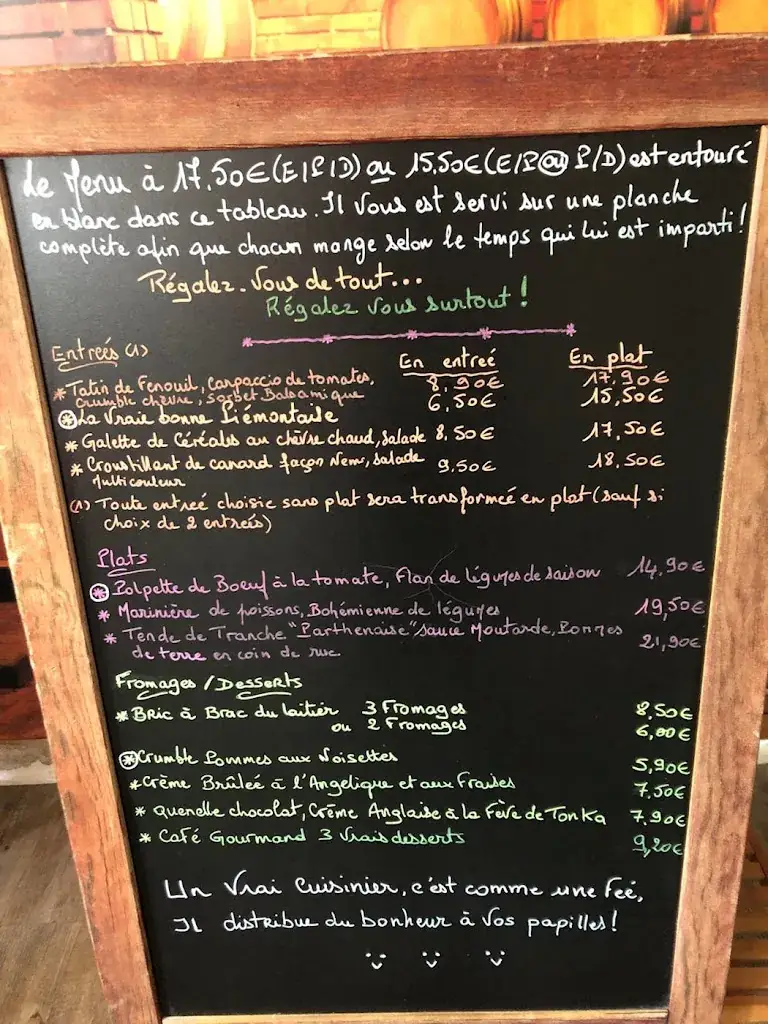 Le Menu à 17,50€ (E/P/D) ou 15,50€ (E/P ou P/D) est entouré
en blanc dans ce tableau. Il vous est servi sur une planche
complète afin que chacun mange selon le temps qui lui est imparti !
Régalez-vous de tout...
Régalez vous surtout !
Entreés (1) En entreé En plat
* Tatin de Fenouil, Carpaccio de tomates, 8,90€ 17,90€
Crumble chèvre, Sorbet Balsamique
* La Vraie bonne Piémontaise 6,50€ 15,50€
* Galette de Céréales au chèvre chaud, salade 8,50€ 17,50€
* Croustillant de canard façon Nems, salade 9,50€ 18,50€
Multicouleur
(1) Toute entreé choisie sans plat sera transformeé en plat (sauf si
choix de 2 entreés)
Plats
* Polpette de Boeuf à la tomate, Flan de légumes de saison 14,90€
* Marinière de poissons, Bohémienne de légumes 19,50€
* Tende de Tranche "Parthenaise" sauce Moutarde, Pommes 21,90€
de terre en coin de rue
Fromages / Desserts
* Bric à Brac du laitier 3 Fromages 8,50€
ou 2 Fromages 6,00€
* Crumble Pommes aux Noisettes 5,90€
* Crème Brûleé à l'Angelique et aux Fraises 7,50€
* Quenelle chocolat, Crème Anglaise à la Fève de Tonka 7,90€
* Café Gourmand 3 Vrais desserts 9,20€
Un Vrai Cuisinier, c'est comme une Feé,
Il distribue du bonheur à vos papilles !